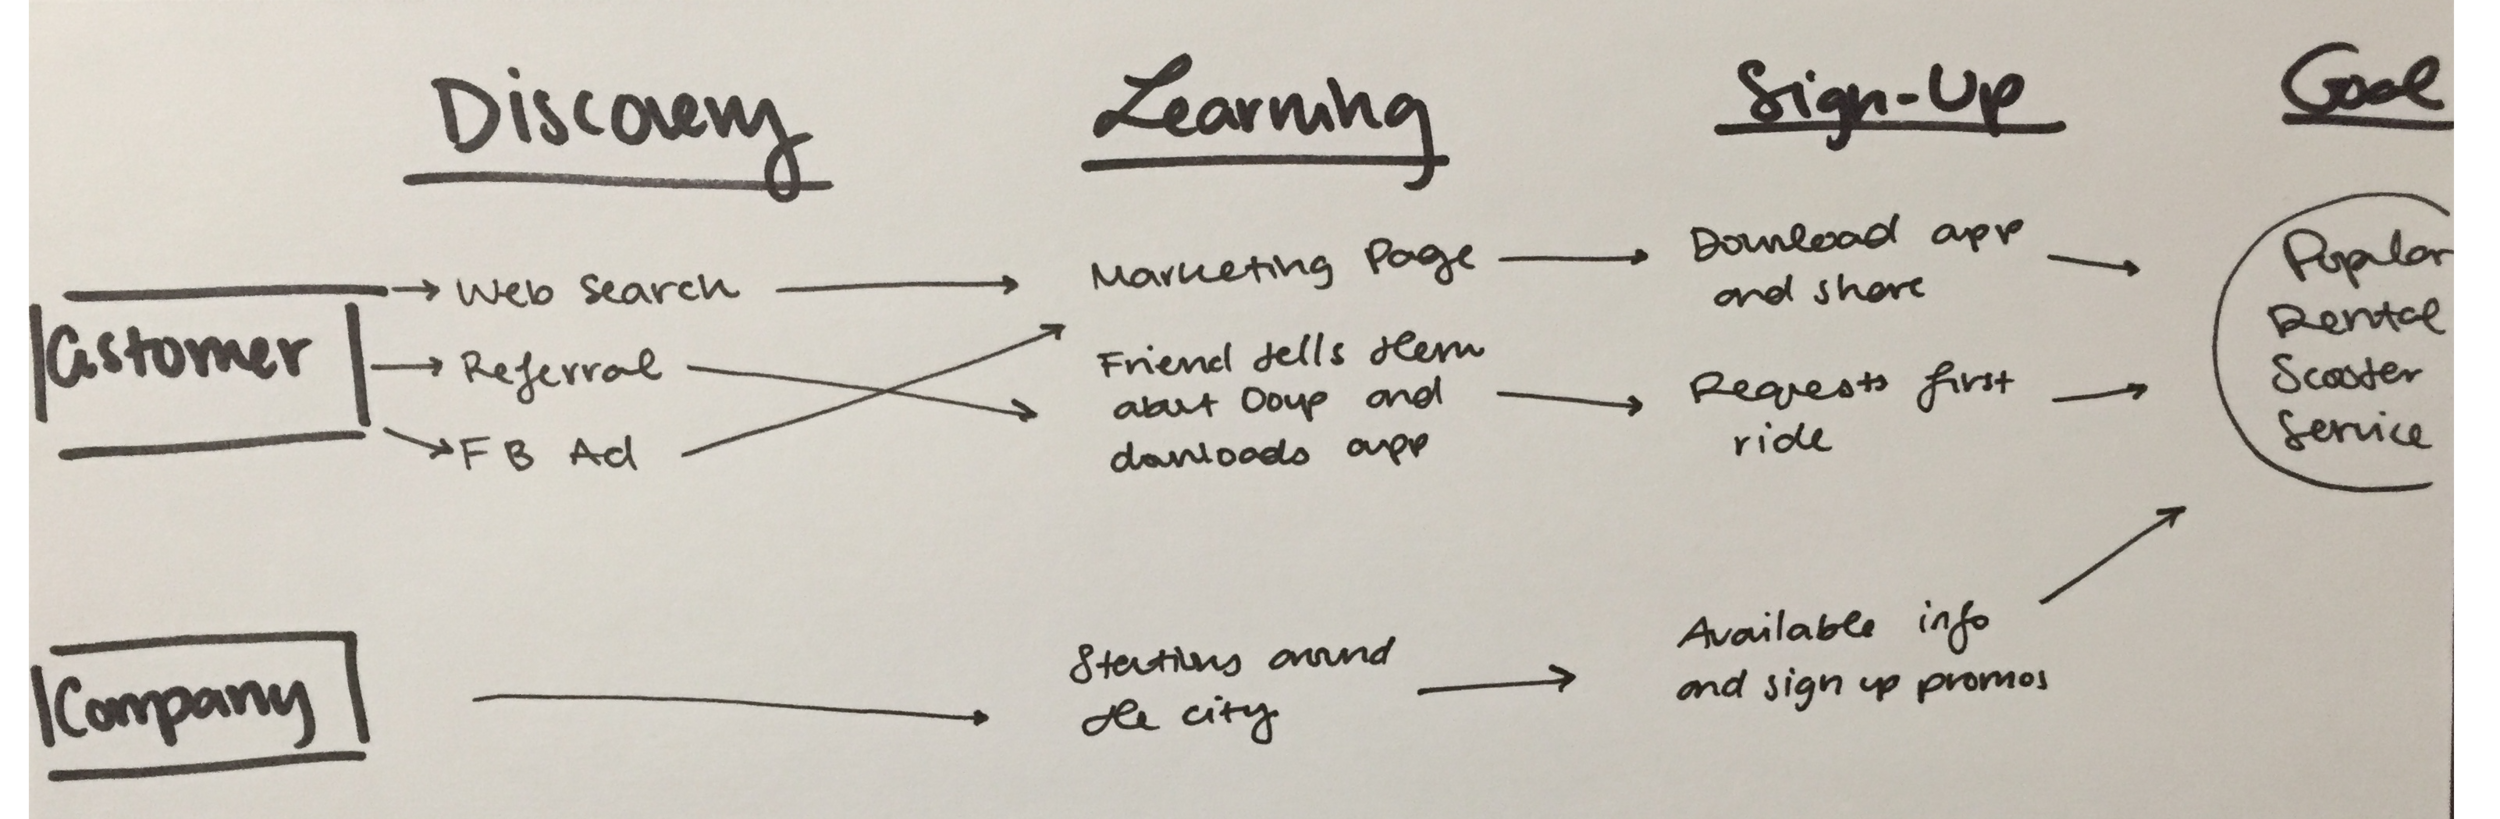 Discovery
Learning
Sign-Up
Goal
Customer
Web Search
Referral
FB Ad
Marketing Page
Friend tells them
about Ooup and
downloads app
Download app
and share
Requests first
ride
Popular
Rental
Scooter
Service
Company
Stations around
the city
Available info
and sign up promos